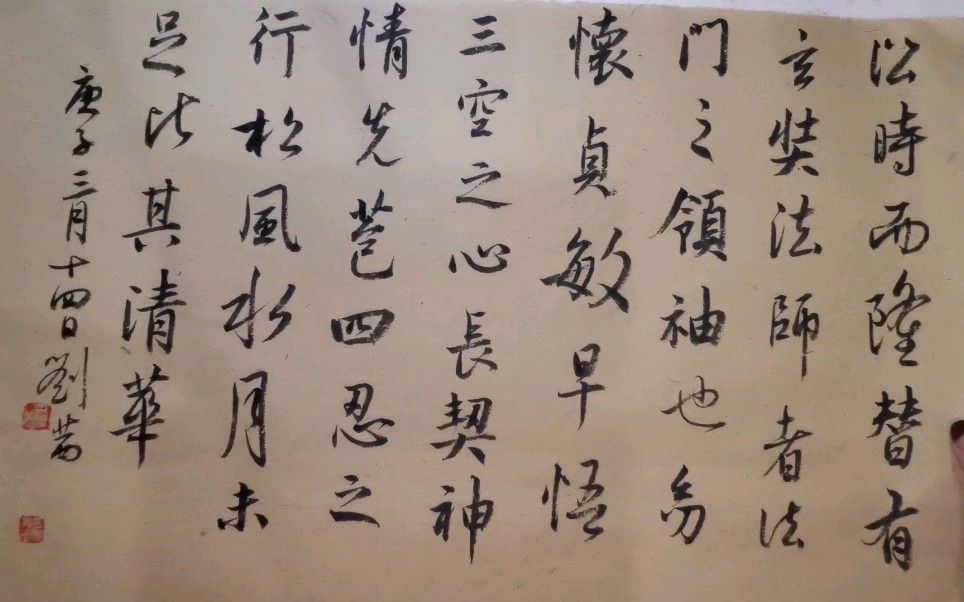 沿時而隆替有
玄奘法師者法
門之領袖也幼
懷貞敏早悟
三空之心長契神
情先苞四忍之
行松風水月未
足比其清華
庚子三月十四日劉